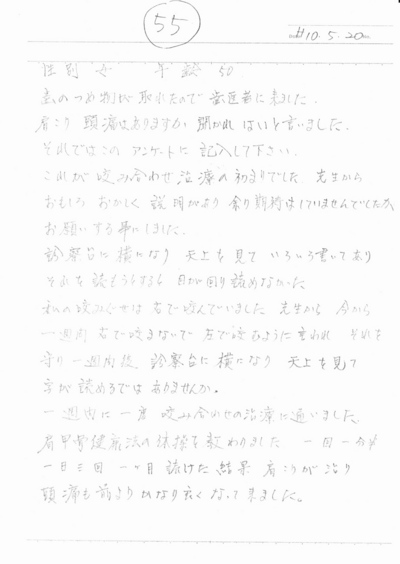 55
H10.5.20
性別 女 年齢 50
歯のつめ物が取れたので歯医者に来ました.
肩こり 頭痛はありますか 聞かれ はいと言いました.
それではこの アンケートに 記入して下さい.
これが 咬み合わせ治療の初まりでした 先生から
おもしろ おかしく 説明があり 余り期待はしていませんでしたが
お願いする事にしました.
診察台に横になり 天上を見て いろいろ書いてあり
それを読もうとするも 目が回り読めなかった
私の咬み合せは右で咬んでいました 先生から 今から
一週間 右で咬まないで 左で咬むように言われ それを
守り一週間後 診察台に横になり 天上を見て
字が読めるではありませんか.
一週間に一度 咬み合わせの治療に通いました
肩甲骨健康法の体操を教わりました 一回一分半
一日三回 一ヶ月続けた結果 肩こりが治り
頭痛も前よりかなり良くなって来ました。